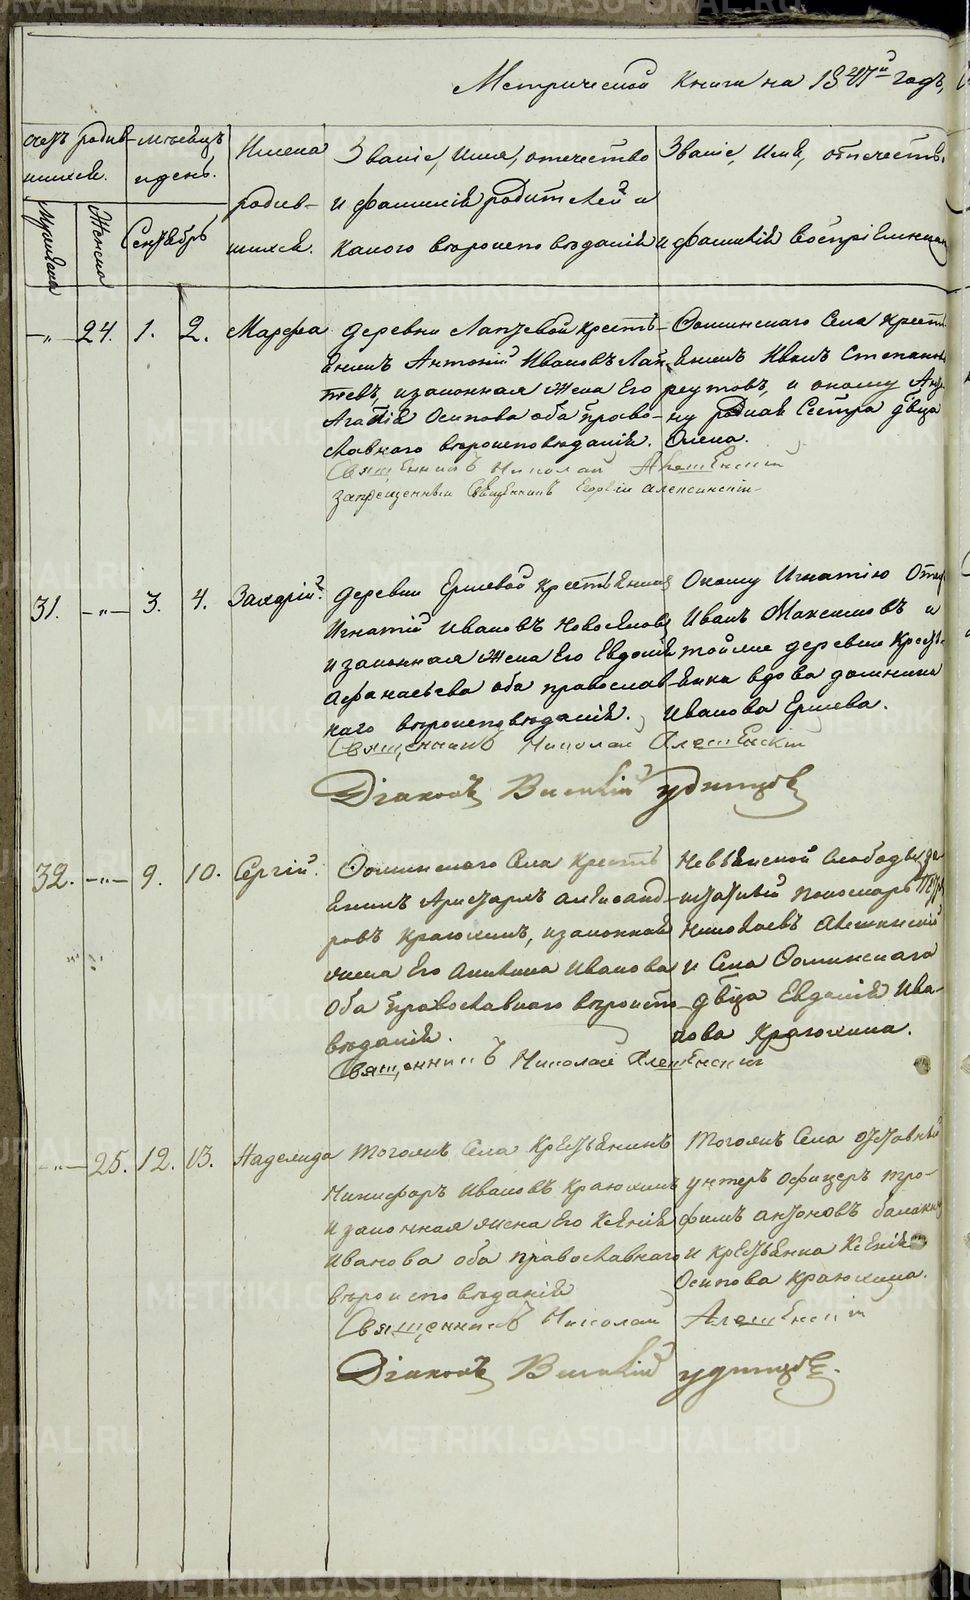 Метрической книги на 1847й годъ,
счетъ родив-
шихся.
Мужеска
Женска
месяцъ
и день.
Сентябрь
Имена
родив-
шихся.
Званіе, имя, отечество
и фамилія родителей и
какого вероисповеданія
Званіе, имя, отечество
и фамилія воспріемник
-"- 24. 1. 2. Марфа
деревни Лаптевой кресть-
янинъ Антоній Ивановъ Лап-
тевъ, и законная жена Его
Агафія Осипова оба право-
славнаго вероисповеданія.
Фоминскаго Села крест
янинъ Иванъ Степанов
реутовъ, и оному Анто
ну родная Сестра двца
Олена.
Священникъ Николай Алешенскій
запрещенный Священникъ Егорій Алексинскій
31. -"- 3. 4. Захарій.
деревни Ершевой крестьянинъ
Игнатій Ивановъ Новоселовъ
и законная жена Его Евдокія
Афанасьева оба православ
наго вероисповеданія.
Оному Игнатію Отецъ
Иванъ Максимовъ и
той же деревни крест
янка вдова домника
Иванова Ершева.
Священникъ Николай Алешенскій
Діаконъ Василій Удинцовъ
32. -"- 9. 10. Сергій.
Фоминскаго Села кресть
янинъ Аристархъ Александ-
ровъ Краюхинъ, и законная
жена Его Акилина Иванова
Оба Православнаго вероиспо
веданія.
Невьянской Слободы за-
штатный пономарь Петръ
Николаевъ Алешинскій
и Села Фоминскаго
двца Евдокія Ива-
нова Краюхина.
Священникъ Николай Алешенскій
-"- 25. 12. 13. Надежда
Тогожъ Села Крестьянинъ
Никифоръ Ивановъ Краюхинъ
и законная жена Его Ксенія
Иванова оба православнаго
вероисповеданія
Тогожъ Села отставной
унтеръ офицеръ Тро-
фимъ Антоновъ балакин
и крестьянка Ксенія
Осипова Краюхина.
Священникъ Николай Алешенскій
Діаконъ Василій Удинцовъ.
METRIKI.GASO-URAL.RU